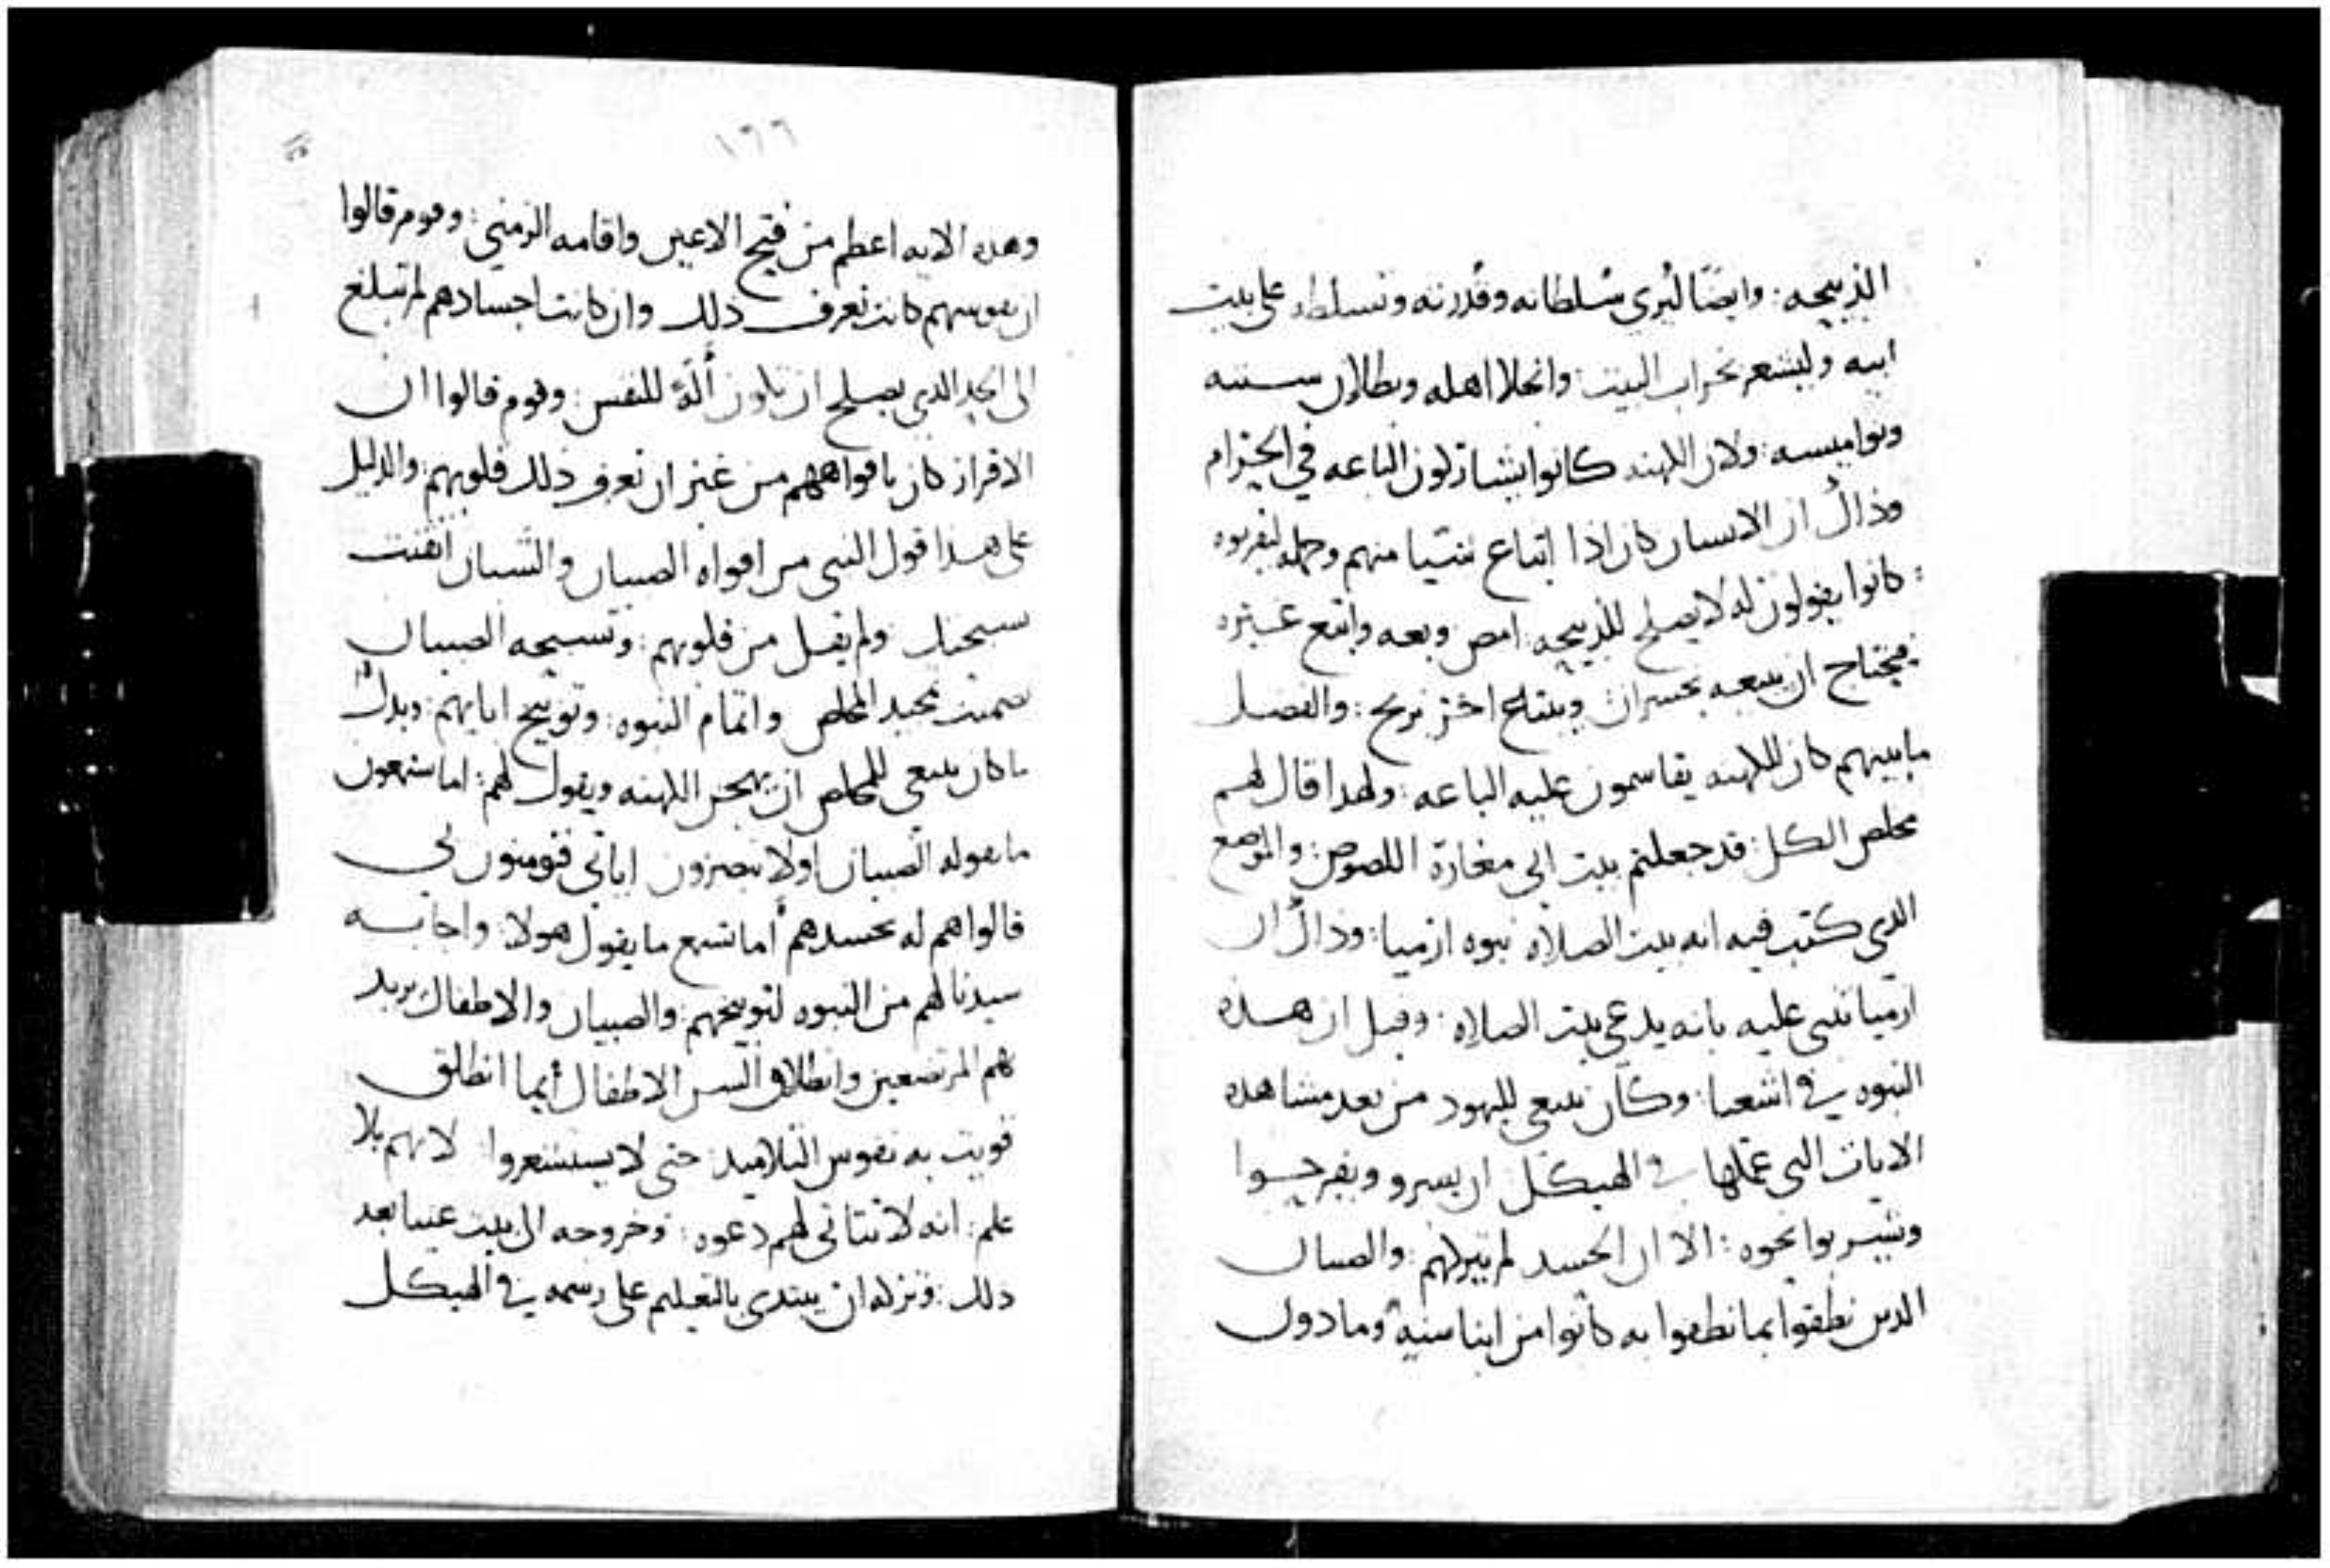 الذبيحه: وايضًا ليُري سُلطانه وقُدرته وتسلطه على بيت
ابيه وليشعر بخراب البيت: وانحلال اهله وبطلان سننه
ونواميسه: ولان الكهنه كانوا يشاركون الباعه في الحرام
وذاك ان الانسان كان اذا ابتاع شيا منهم وحمله ليقربوه
كانوا يقولون له لا يصلح للذبيحه: امض وبعه وابتع غيره
فيحتاج ان يبيعه بخسران ويبتاع اخر بربح: والفضل
ما بينهم كان للكهنه يقاسمون عليه الباعه: ولهدا قال لهم
مخلص الكل: قد جعلتم بيت ابي مغارة اللصوص: والموضع
الدي كتب فيه انه بيت الصلاه نبوه ارميا: وذاك ان
ارميا تنبي عليه بانه يدعي بيت الصلاه: وقيل ان هذه
النبوه في اشعيا: وكان ينبغي لليهود من بعد مشاهده
الايات التي عملها في الهيكل ان يسرو ويفرحوا
ويتسربوا نحوه: الا ان الحسد لم يتركهم: والصبيان
الدين نطقوا بما نطقوا به كانوا من ابنا سنيه وما دون
١٦٦
وهده الايه اعظم من فتح الاعين واقامه الزمني: وقوم قالوا
ان نفوسهم كانت تعرف دلك وان كانت اجسادهم لم تبلغ
الى الحد الدي يصلح ان تكون ألَةً للنفس: وقوم قالوا ان
الاقرار كان بافواههم من غير ان تعرف ذلك قلوبهم: والدليل
على هدا قول النبي من افواه الصبيان والشبان اتقنت
سبحتك ولم يقل من قلوبهم: وتسبحه الصبيان
ضمنت تمجيد المخلص واتمام النبوه: وتوبيخ ابايهم: وبدل
ما كان ينبغي للمخلص ان يهجن الكهنه ويقول لهم: اما تسمعون
ما يقوله الصبيان اولا تبصرون اياتي فتومنون بي
قالوا هم له بحسدهم أما تسمع ما يقول هولا: واجابه
سيدنا لهم من النبوه لتوبيخهم: والصبيان والاطفال يريد
بهم المرتضعين وانطلاق السن الاطفال أيما انطلق
قويت به نفوس التلاميد: حتى لا يستشعروا لانهم بلا
علم: انه لا تتاتى لهم دعوه: وخروجه الى بيت عنيا بعد
دلك: وتركه ان يبتدي بالتعليم على رسمه في الهيكل